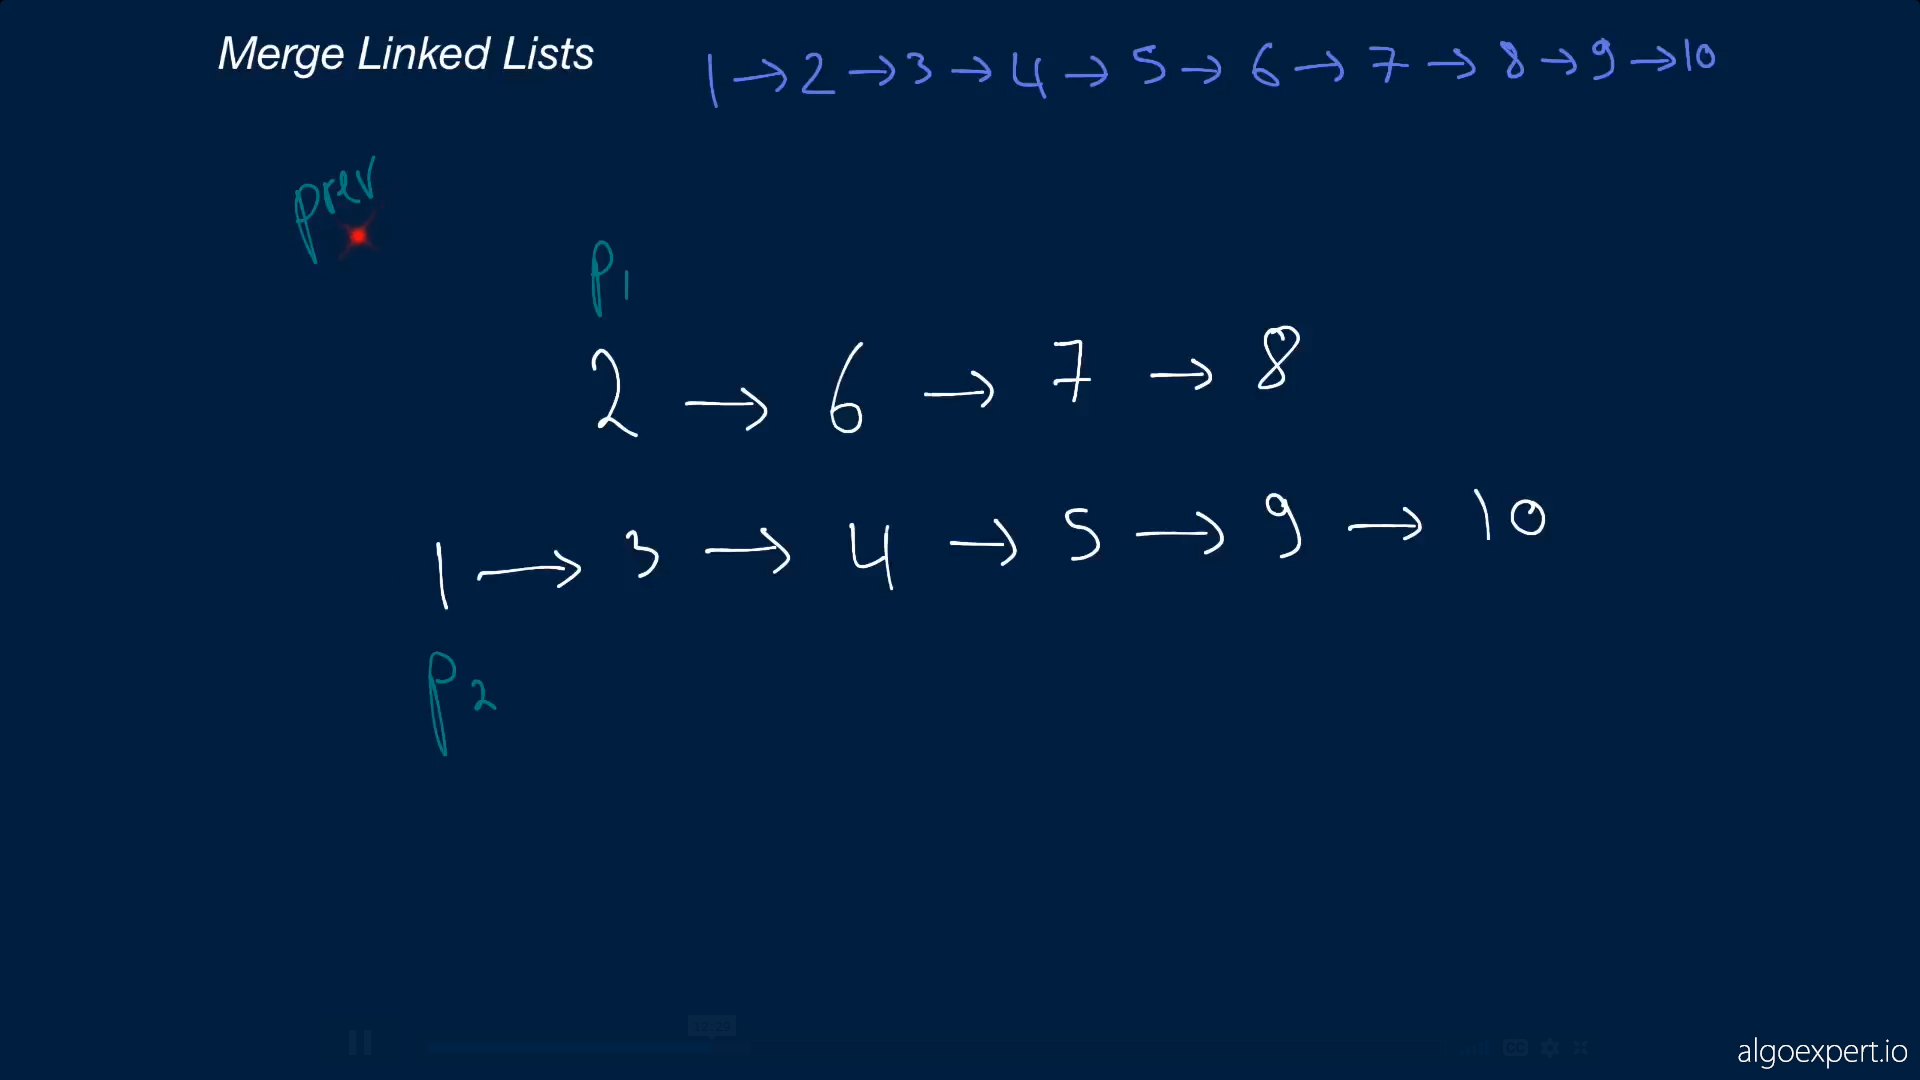 Merge Linked Lists
1 → 2 → 3 → 4 → 5 → 6 → 7 → 8 → 9 → 10
prev
P1
2 → 6 → 7 → 8
1 → 3 → 4 → 5 → 9 → 10
P2
algoexpert.io